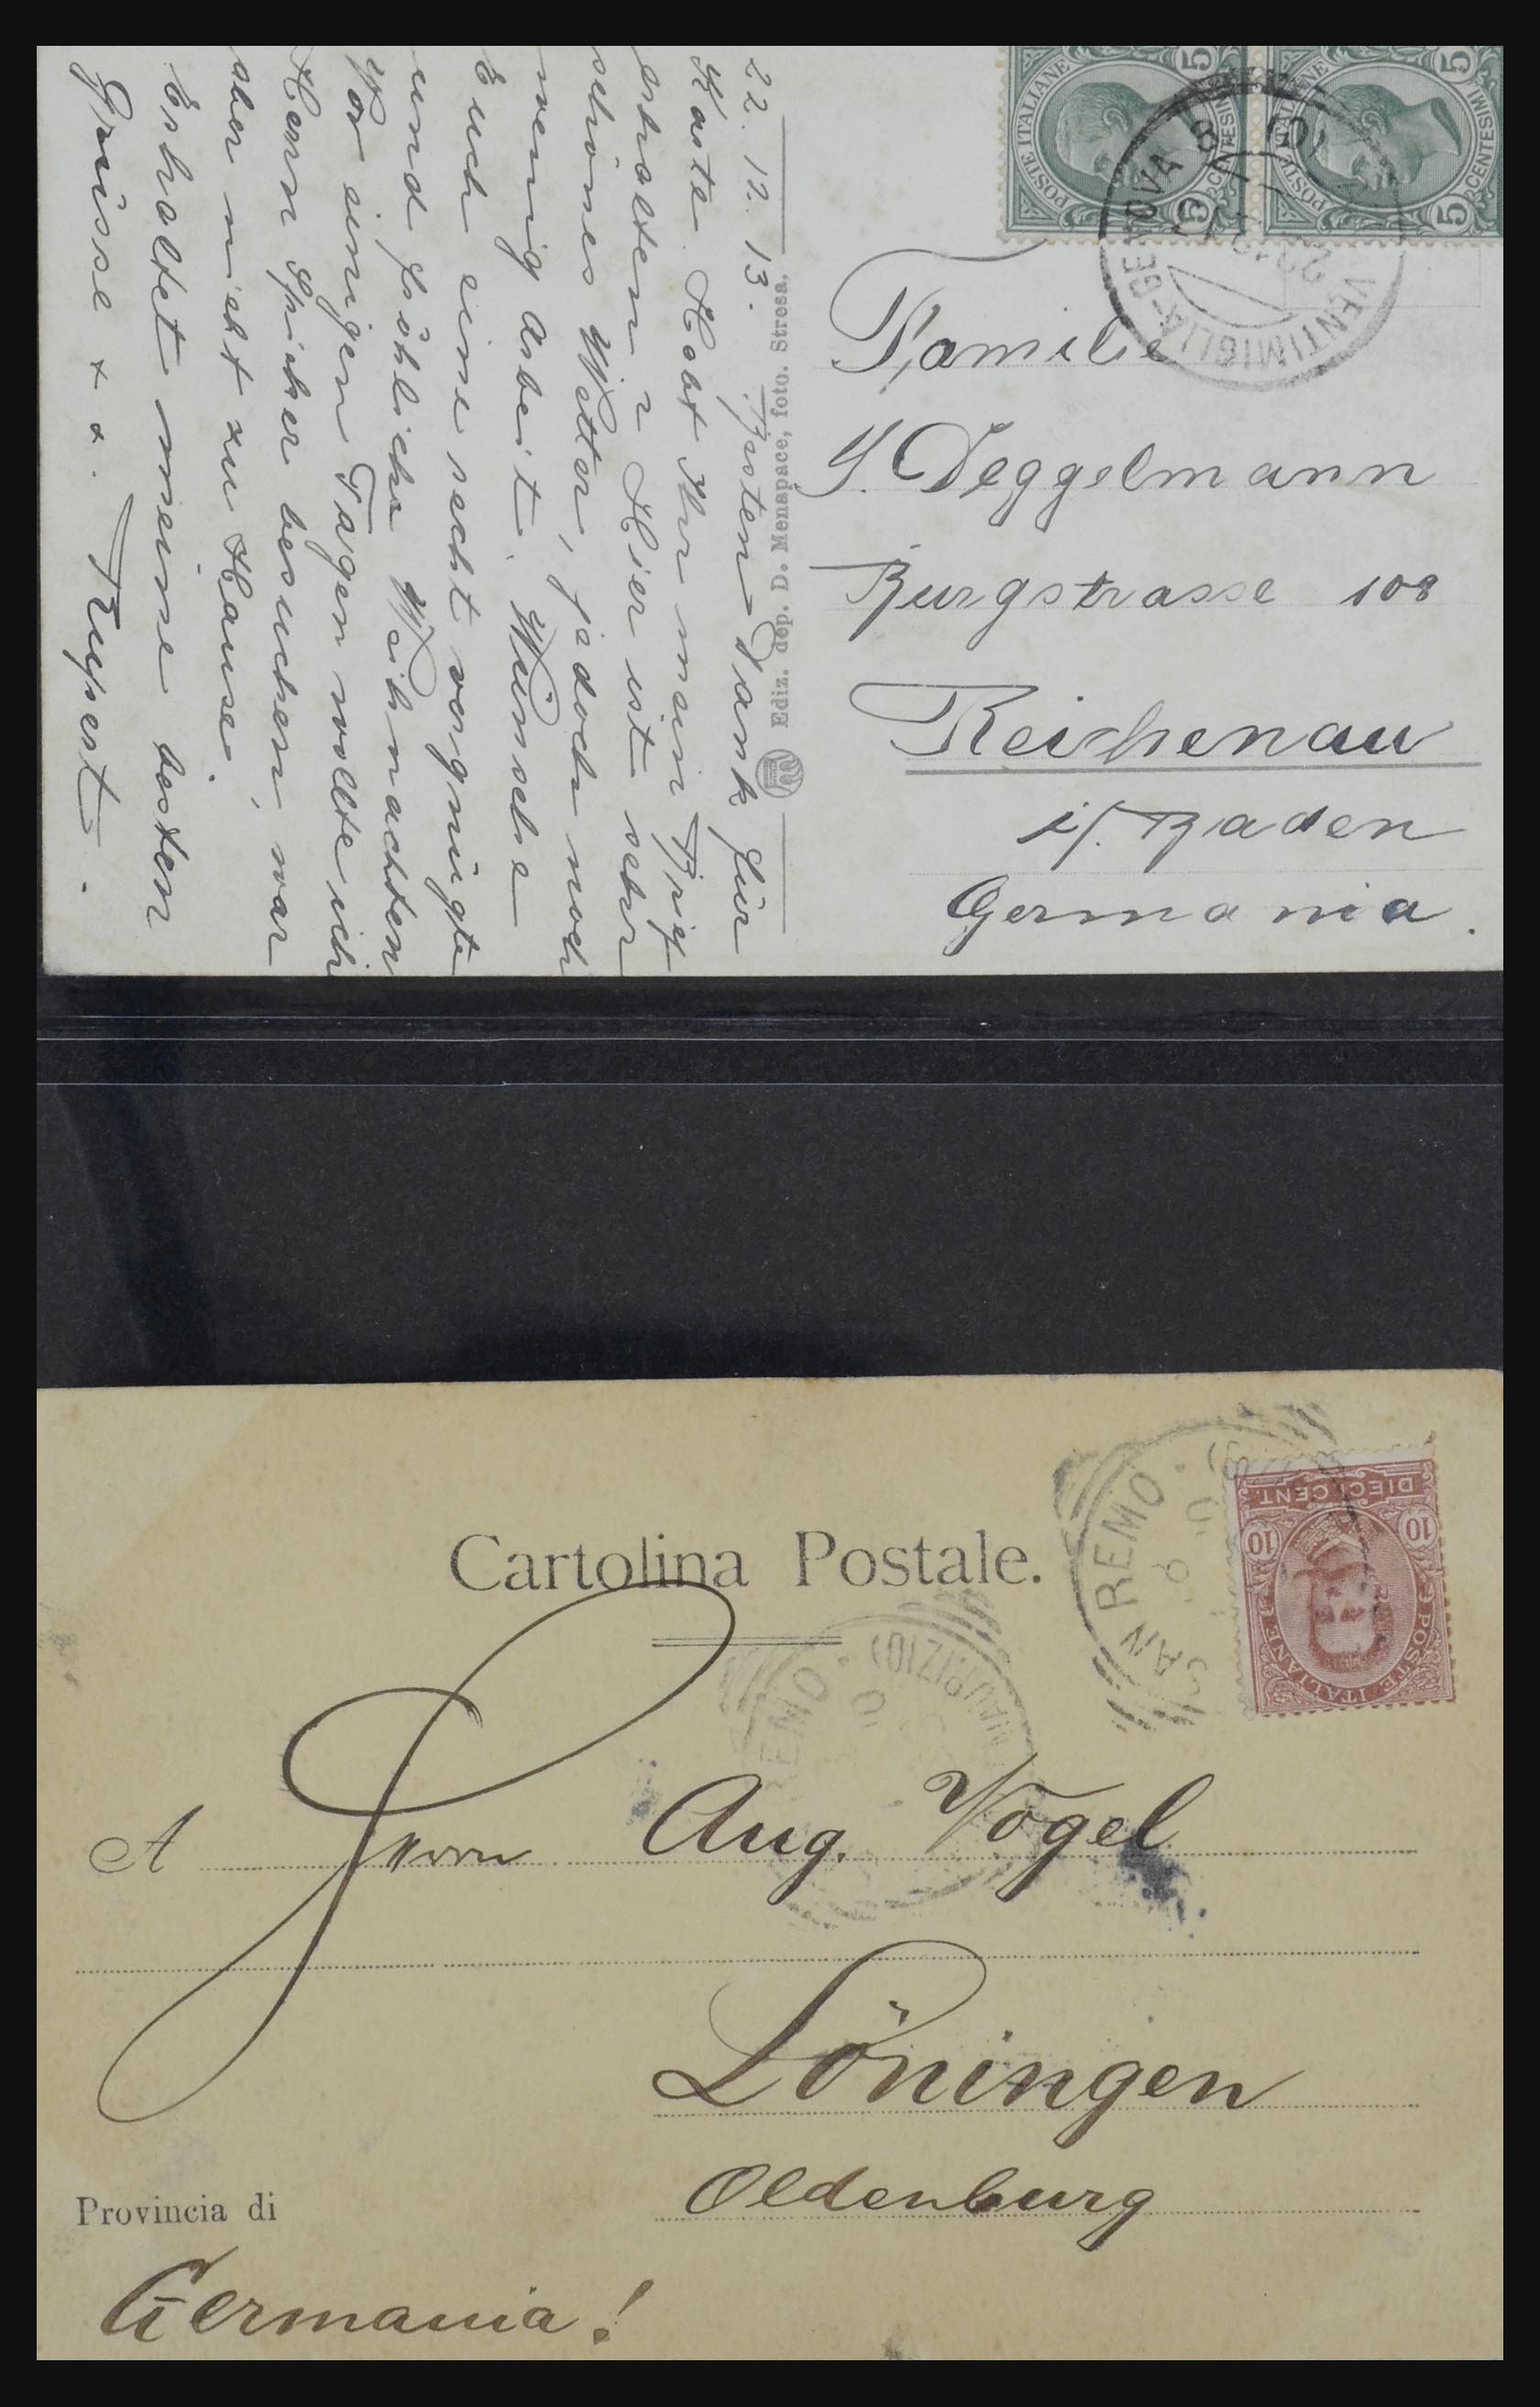 22. 12. 13. Besten Dank für
Karte. Habt Ihr mein Brief
erhalten? Hier ist sehr
schönes Wetter, jedoch noch
wenig Arbeit. Wünsche
Euch eine recht vergnügte
und fröhliche Weihnachten
Vor einigen Tagen wollte ich
Herrn Spicher besuchen, war
aber nicht zu Hause.
Erhaltet meine besten
Grüsse + +. Rupert.
Ediz. dep. D. Menapace, foto. Stresa.
POSTE ITALIANE
5 CENTESIMI 5
POSTE ITALIANE
5 CENTESIMI 5
VENTIMIGLIA-GENOVA 8
Familie
J. Deggelmann
Burgstrasse 108
Reichenau
i/. Baden
Germania.
Cartolina Postale.
POSTE ITALIANE
10 10
DIECI CENT.
SAN REMO
REMO
(MAURIZIO)
A Herrn Aug. Vogel
Löningen
Oldenburg
Provincia di
Germania!